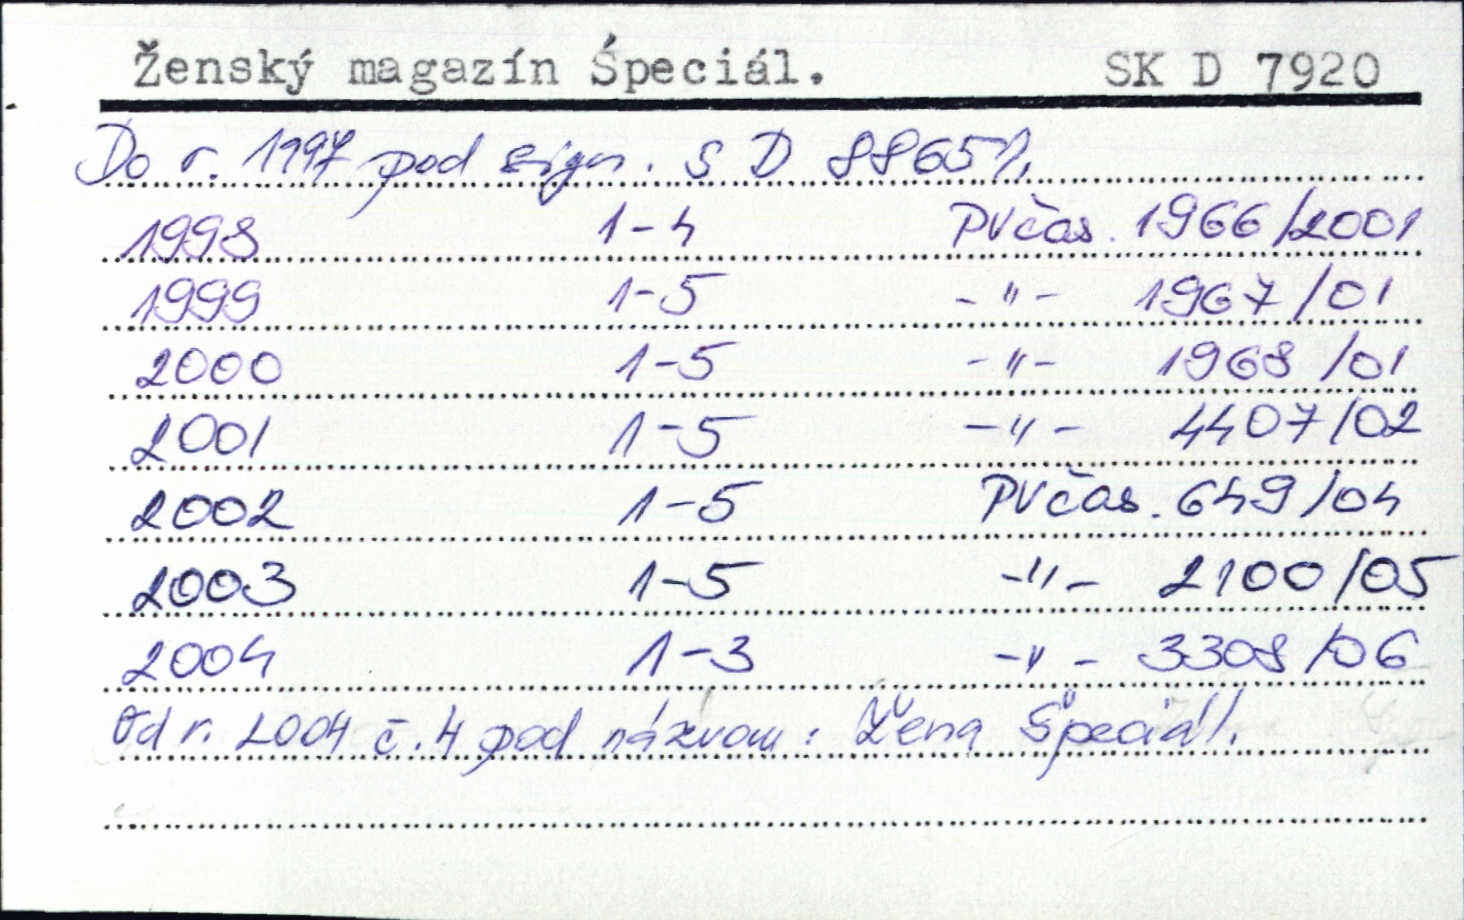 Ženský magazín Špeciál. SK D 7920
Do r. 1997 pod sign. S D 8865/
1998 1-4 PVčas. 1966/2001
1999 1-5 -"- 1967/01
2000 1-5 -"- 1968/01
2001 1-5 -"- 4407/02
2002 1-5 PVčas. 649/04
2003 1-5 -"- 2100/05
2004 1-3 -"- 3308/06
Od r. 2004 č. 4 pod názvom: Žena Špeciál.